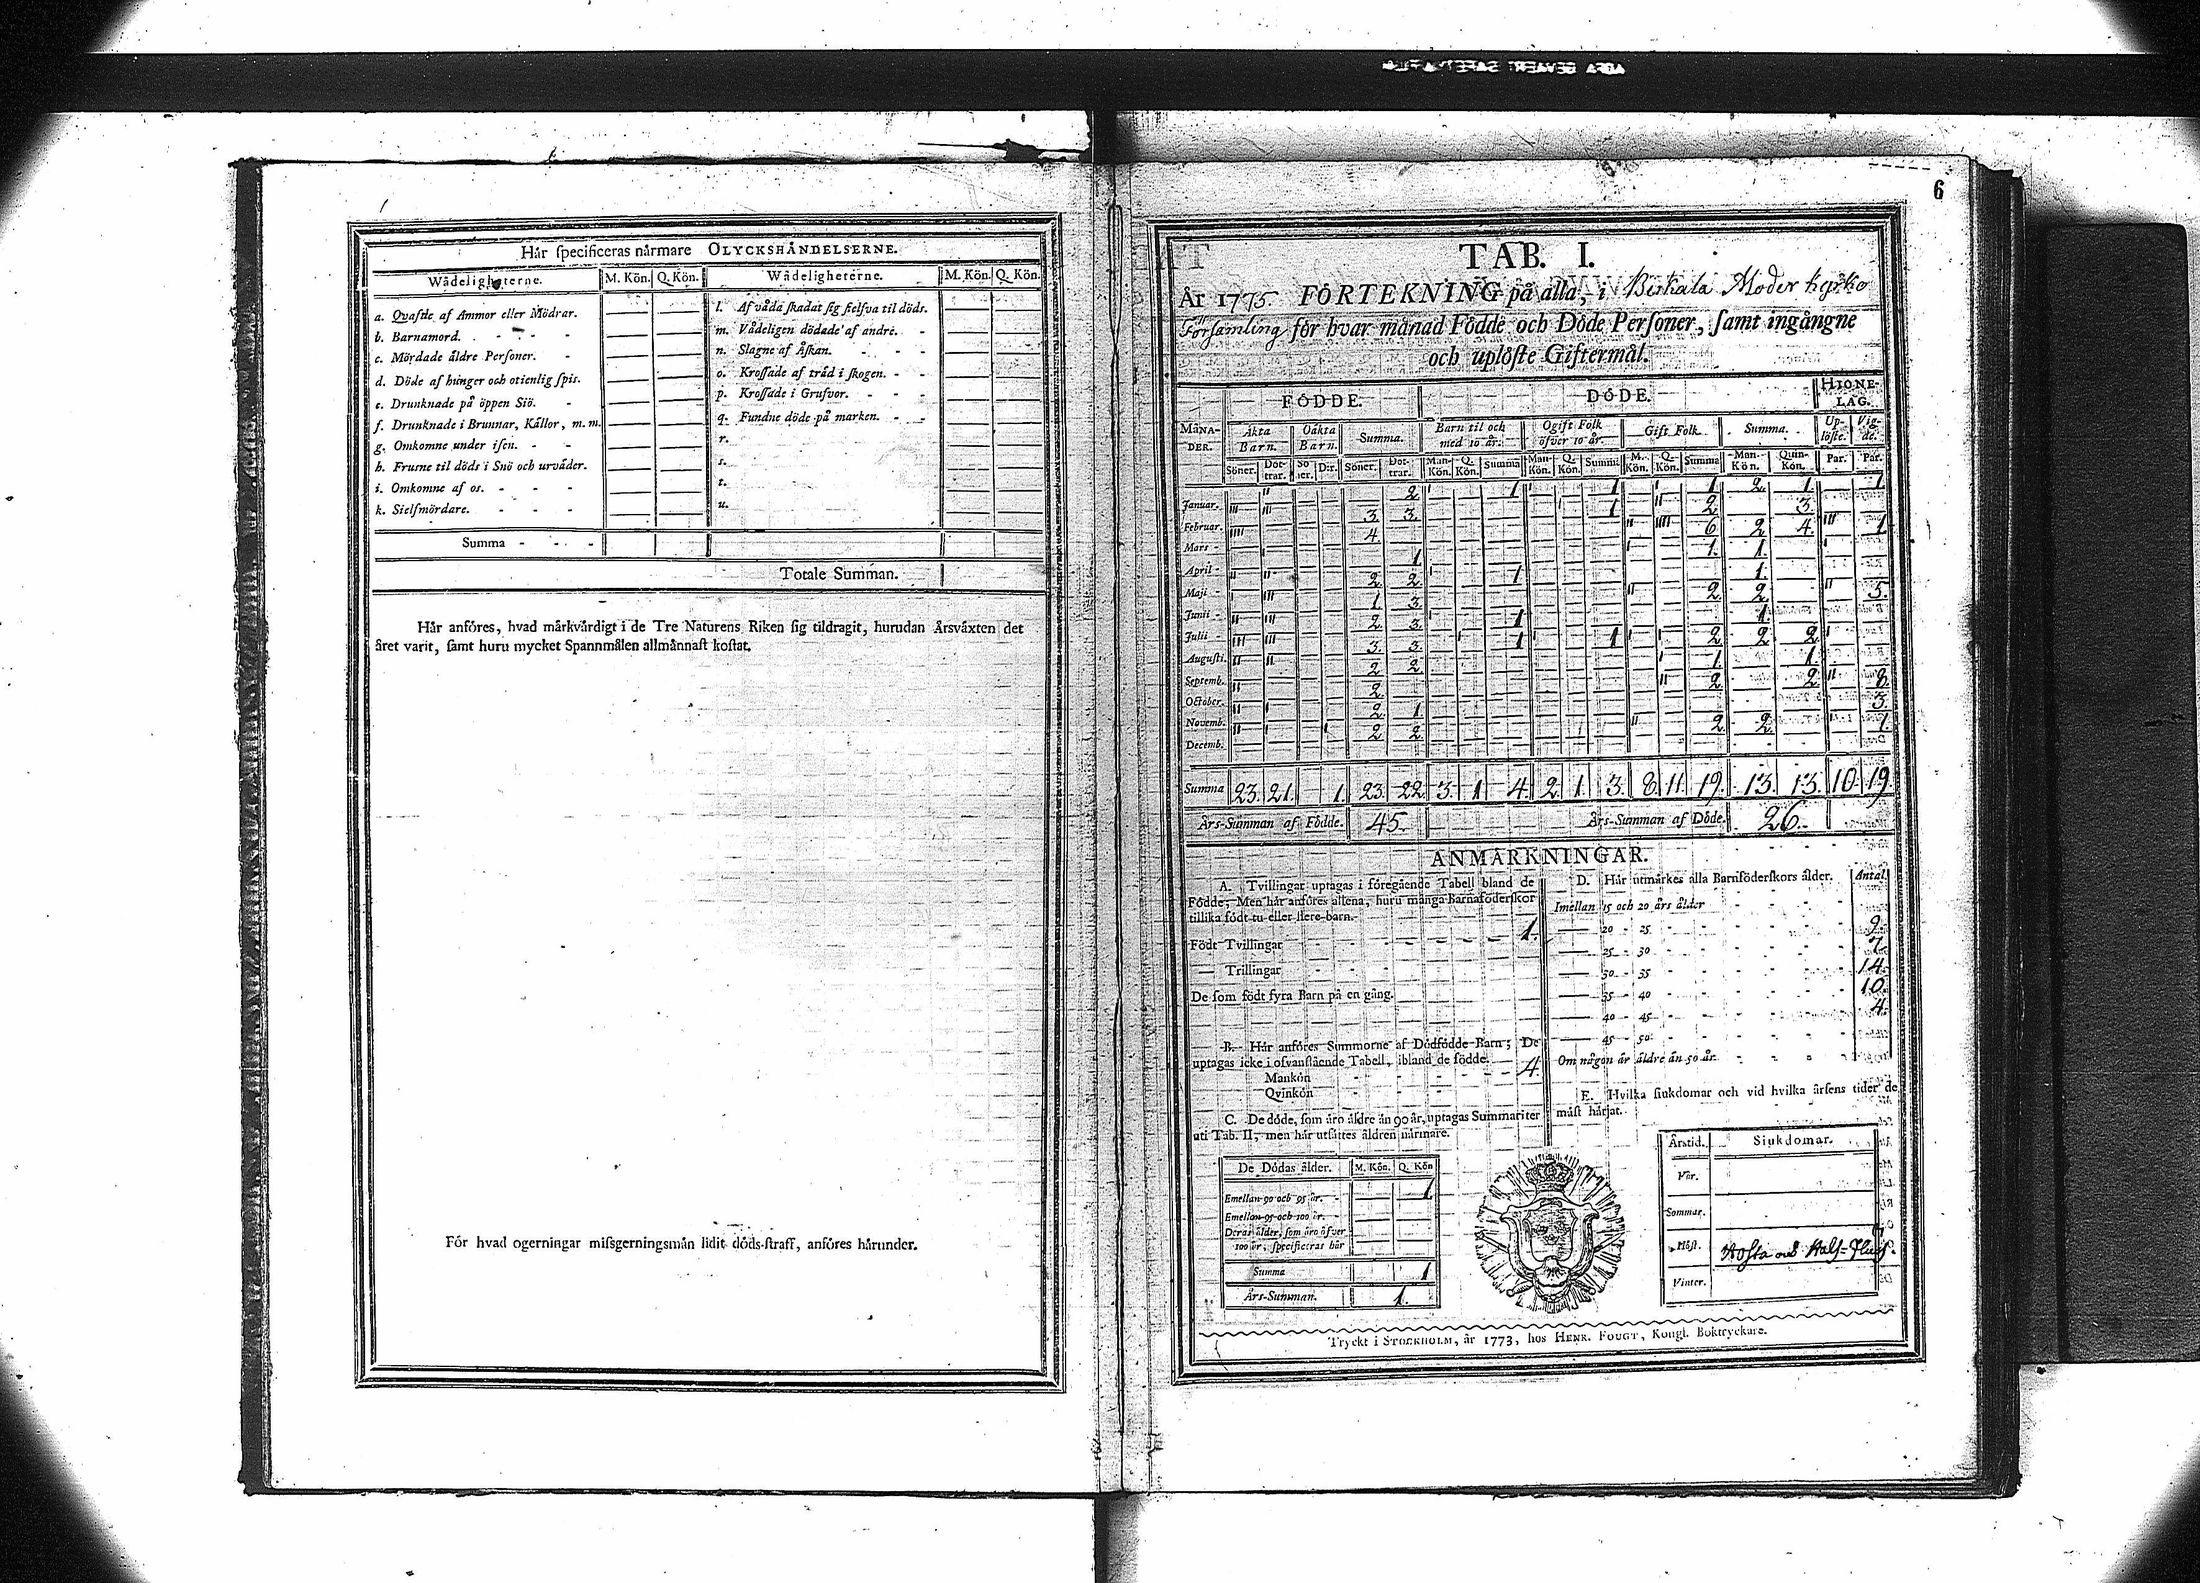 6
Hår ſpecificeras nårmare OLYCKSHÅNDELSERNE.
Wådeligheterne. M. Kön. Q. Kön. Wådeligheterne. M. Kön. Q. Kön.
a. Qvafde af Ammor eller Mödrar.
b. Barnamord.
c. Mördade åldre Perſoner.
d. Döde af hunger och otienlig ſpis.
e. Drunknade på öppen Siö.
f. Drunknade i Brunnar, Kållor, m. m.
g. Omkomne under iſen.
h. Fruſne til döds i Snö och urvåder.
i. Omkomne af os.
k. Sielfmördare.
l. Af våda ſkadat ſig ſielfva til döds.
m. Vådeligen dödade af andre.
n. Slagne af Åſkan.
o. Kroſſade af tråd i ſkogen.
p. Kroſſade i Grufvor.
q. Fundne döde på marken.
r.
s.
t.
u.
Summa
Totale Summan.
Hår anföres, hvad mårkvårdigt i de Tre Naturens Riken ſig tildragit, hurudan Årsvåxten det
året varit, ſamt huru mycket Spannmålen allmånnaſt koſtat.
För hvad ogerningar miſsgerningsmån lidit döds-ſtraff, anföres hårunder.
TAB. I.
År 1775 FÖRTEKNING på alla, i Birkala Moder kyrko
Förſamling för hvar månad Födde och Döde Perſoner, ſamt ingångne
och uplöſte Giftermål.
MÅNADER. FÖDDE. DÖDE. HIONELAG.
Åkta Barn. Oåkta Barn. Summa. Barn til och med 10 år. Ogift Folk öfver 10 år. Gift Folk. Summa. Uplöſte. Vigde.
Söner. Döttrar. Söner. Dir. Söner. Döttrar. Man-Kön. Q. Kön. Summa Man-Kön. Q. Kön. Summa M. Kön. Q. Kön. Summa Man-Kön. Quin-Kön. Par. Par.
Januar. 2 1 1 1 2 1 1
Februar. 3 3 1 2 3
Mars 4 6 2 4 1
April 1 1 1
Maji 2 2 1 1
Junii 1 3 2 2 5
Julii 2 3 1 1
Auguſti. 3 3 1 1 2 2 2
Septemb. 2 2 1 1
October. 2 2 2 8
Novemb. 2 1 3
Decemb. 2 2 2 2 1
Summa 23. 21. 1. 23. 22 3 1 4. 2 1. 3. 8. 11. 19. 13. 13. 10. 19.
Års-Summan af Födde. 45. Års-Summan af Döde. 26.
ANMÅRKNINGAR.
A. Tvillingar uptagas i föregående Tabell bland de
Födde; Men hår anföres allena, huru många Barnaföderſkor
tillika födt tu eller flere barn.
Födt Tvillingar 1.
— Trillingar
De ſom födt fyra Barn på en gång.
B. Hår anföres Summorne af Dödfödde Barn; De
uptagas icke i ofvanſtående Tabell, ibland de födde. 4.
Mankön
Qvinkön
C. De döde, ſom åro åldre ån 90 år, uptagas Summariter
uti Tab. II, men hår utſåttes åldren nårmare.
De Dödas ålder. M. Kön. Q. Kön
Emellan 90 och 95 år. 1
Emellan 95 och 100 år.
Deras ålder, ſom åro öfver
100 år, ſpecificeras hår
Summa 1
Års-Summan. 1.
D. Hår utmårkes alla Barnföderſkors ålder. Antal.
Imellan 15 och 20 års ålder
20 - 25 9.
25 - 30 7.
30 - 35 14.
35 - 40 10.
40 - 45 4.
45 - 50
Om någon år åldre ån 50 år.
E. Hvilka ſiukdomar och vid hvilka årſens tider de
måſt hårjat.
Årstid. Siukdomar.
Vår.
Sommar.
Höſt. Hoſta och Hals-Fluſſ.
Vinter.
Tryckt i STOCKHOLM, år 1773, hos HENR. FOUGT, Kongl. Boktryckare.